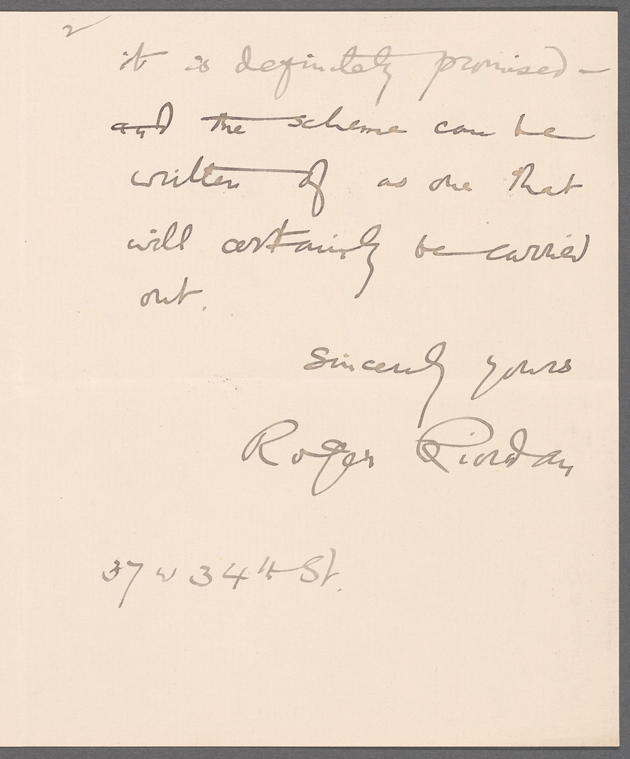 2
it is definitely promised—
and the scheme can be
written of as one that
will certainly be carried
out.
Sincerely yours
Roger Riordan
37 W 34th St.